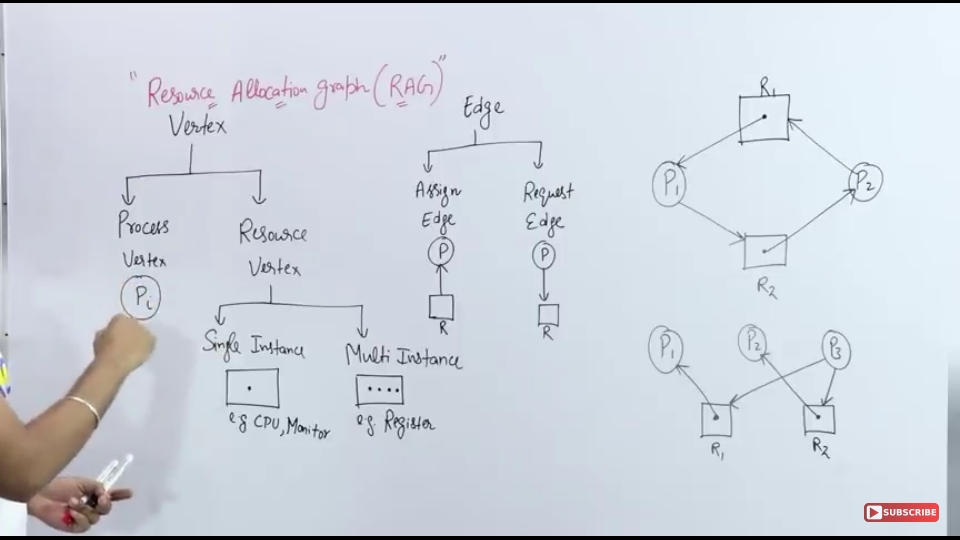 "Resource Allocation graph (RAG)"
Vertex
Process
Vertex
Pi
Resource
Vertex
Single Instance
e.g CPU, Monitor
Multi Instance
e.g. Register
Edge
Assign
Edge
P
R
Request
Edge
P
R
R1
P1
P2
R2
P1
P2
P3
R1
R2
SUBSCRIBE